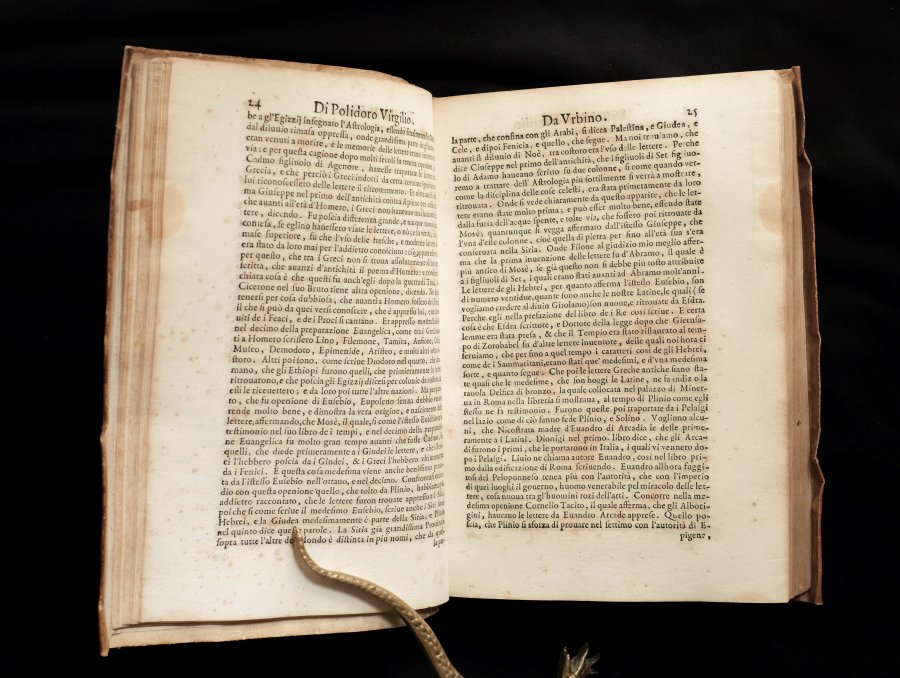 24
Di Polidoro Virgilio.
be a gl'Egizzij insegnato l'Astrologia, essendo
dal diluuio rimasa oppressa, onde grandissima parte
eran venuti a morire, e le memorie delle lettere
via: e per questa cagione dopo molti secoli
Cadmo figliuolo di Agenore, hauesse trapportate le
Grecia, e che perciò i Greci indotti da certa
lui riconoscessero delle lettere il ritrouamento.
ma Giuseppe nel primo dell'antichità contra Apione
che auanti all'età d'Homero, i Greci non haueano
tere, dicendo. Fu poscia differenza grande, e nacque
contesa, se eglino hauessero vsate le lettere, o nò; e la
mase superiore, fu che l'vso delle fresche, e moderne
era stato da loro mai per l'addietro conosciuto;
per questo, che tra i Greci non si troua assolutamente
scritta, che auanzi d'antichità il poema d'Homero
chiara cosa è che questi fu anch'egli dopo la guerra di
Cicerone nel suo Bruto tiene altra openione, dicendo.
tenersi per cosa dubbiosa, che auanti a Homero fossero
il che si può da quei versi conoscere, che appresso lui,
uiti de i Feaci, e de i Proci si cantano. Et appresso
nel decimo della preparazione Euangelica, come tra i
scriuessero Lino, Filemone, Tamira, Anfione,
Museo, Demodoto, Epimenide, Aristeo, e molti altri
storo. Altri poi sono, come scriue Diodoro nel quarto, che
mano, che gli Ethiopi furono quelli, che primieramente
ritrouarono, e che poscia gli Egizzij discesi per colonie da
essi le riceuettero; e da loro poi tutte l'altre nazioni. Ma
to, che fu openione di Eusebio, Eupoleno senza dubbio
rende molto bene, e dimostra la vera origine, e nascimento
lettere, affermando, che Mosè, il quale, sì come l'istesso Eusebio
testimonio nel suo libro de i tempi, e nel decimo della
ne Euangelica fu molto gran tempo auanti che fosse Cadmo,
quelli, che diede primieramente a i Giudei le lettere, e che
ci l'hebbero poscia da i Giudei, & i Greci l'hebbero
da i Fenici. E questa cosa medesima viene anche benissimo
ta da l'istesso Eusebio nell'ottauo, e nel decimo.
dio con questa openione quello, che tolto da Plinio,
addietro raccontato, che le lettere furon trouate appresso a i
poi che sì come scriue il medesimo Eusebio, scriue anche i Siri
Hebrei, e la Giudea medesimamente è parte della Sitia, e
nel quinto dice parole. La Siria già grandissima
sopra tutte l'altre mondo è distinta in più nomi, che da
la par
25
Da Vrbino.
la parte, che confina con gli Arabi, si dicea Palestina, e Giudea, e
Cele, e dipoi Fenicia, e quello, che segue. Ma noi trouiamo, che
auanti il diluuio di Noè, tra costoro era l'vso delle lettere. Perche
dice Giuseppe nel primo dell'antichità, che i figliuoli di Set figliuo-
lo di Adamo haueano scritto su due colonne, sì come quando ver-
remo a trattare dell'Astrologia più sottilmente si verrà a mostrare,
come la disciplina delle cose celesti, era stata primeramente da loro
ritrouata. Onde si vede chiaramente da questo apparire, che le let-
tere erano state molto prima; e può esser molto bene, essendo state
dalla furia dell'acque spente, e tolte via, che fossero poi ritrouate da
Mosè; quantunque si vegga affermato dall'istesso Giuseppe, che
l'vna d'esse colonne, cioè quella di pietra per fino all'età sua s'era
conseruata nella Siria. Onde Filone al giudizio mio meglio affer-
ma che la prima inuenzione delle lettere fu d'Abramo, il quale è
più antico di Mosè, se già questo non si debbe più tosto attribuire
a i figliuoli di Set, i quali erano stati auanti ad Abramo molt'anni.
Le lettere de gli Hebrei, per quanto afferma l'istesso Eusebio, son
di numero ventidue, quante sono anche le nostre Latine, le quali (se
vogliamo credere al diuin Girolamo) son nuoue, e ritrouate da Esdra.
Perche egli nella prefazione del libro de i Re così scriue. E certa
cosa è che Esdra scrittore, e Dottore della legge dopo che Gierusa-
lemme era stata presa, & che il Tempio era stato ristaurato al tem-
po di Zorobabel fu d'altre lettere inuentore, delle quali noi hora ci
seruiamo, che per fino a quel tempo i caratteri così de gli Hebrei,
come de i Sammaritani, erano stati que' medesimi, e d'vna medesima
sorte, e quanto segue. Che poi le lettere Greche antiche siano sta-
te quasi che le medesime, che son hoggi le Latine, ne fa indizo la
tauola Delfica di bronzo, la quale collocata nel palazzo di Miner-
ua in Roma nella libreria si mostraua, al tempo di Plinio come egli
stesso ne fa testimonio. Furono queste poi traportate da i Pelasgi
nel lazio come di ciò fanno fede Plinio, e Solino. Vogliono alcu-
ni, che Nicostrata madre d'Euandro di Arcadia le desse prime-
ramente a i Latini. Dionigi nel primo libro dice, che gli Arca-
di furono i primi, che le portarono in Italia, i quali vi vennero do-
po i Pelasgi. Liuio ne chiama autore Euandro, così nel libro pri-
mo dalla edificazione di Roma scriuendo. Euandro allhora fuggito-
si del Peloponneso tenea più con l'autorità, che con l'imperio
di quei luoghi il gouerno, huomo venerabile pel miracolo delle let-
tere, cosa nuoua tra gl'huomini rozi dell'arti. Concorre nella me-
desima openione Cornelio Tacito, il quale afferma, che gli Aborti-
gini, haueano le lettere da Euandro Arcade apprese. Quello po-
scia, che Plinio si sforza di prouare nel settimo con l'autorità di E-
pigene,